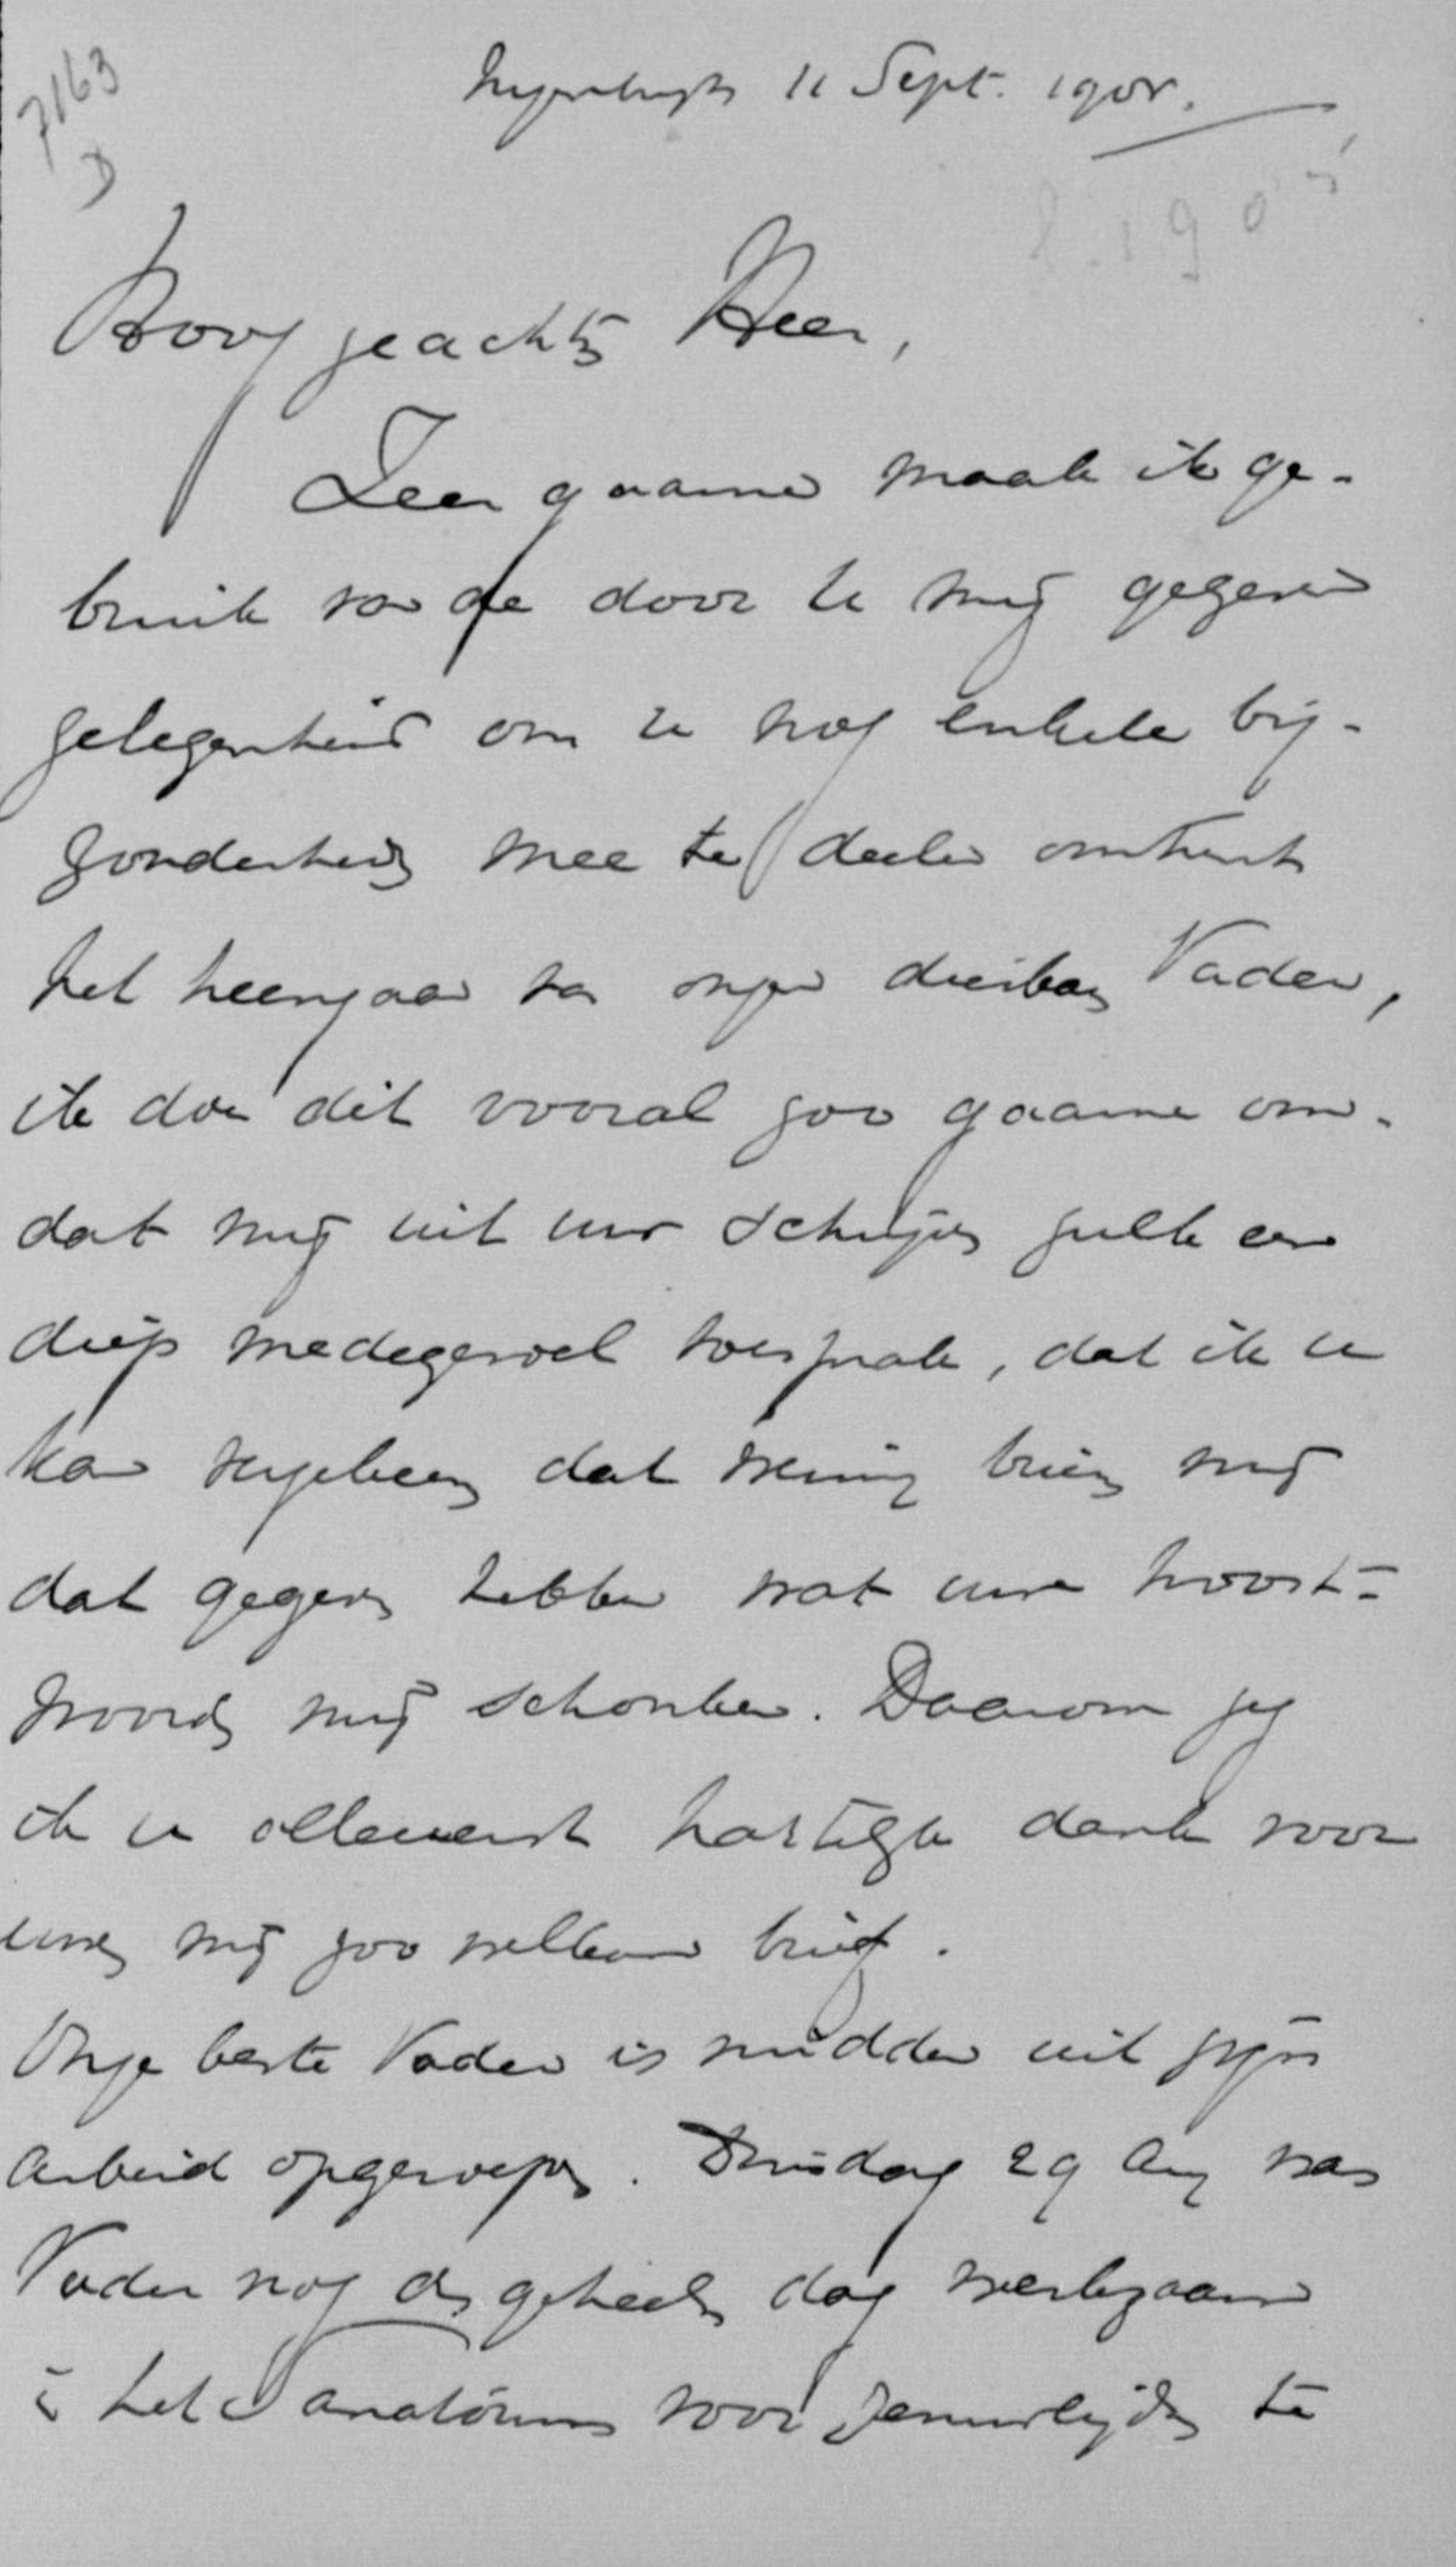 7163
D
11 Sept. 1905.
1905
Hooggeachte Heer,
Zeer gaarne maak ik ge-
bruik van de door U mij gegeven
gelegenheid om U nog enkele bij-
zonderheden mee te deelen omtrent
het heengaan van onzen dierbaren Vader,
ik doe dit vooral zoo gaarne om-
dat mij uit uw schrijven zulk een
diep medegevoel toesprak, dat ik U
kan verzekeren dat weinig brieven mij
dat gegeven hebben wat uwe troost-
woorden mij schonken. Daarom zeg
ik U allereerst hartelijk dank voor
uwen mij zoo welkomen brief.
Onze beste Vader is midden uit zijn
arbeid opgeroepen. Dinsdag 29 Aug was
Vader nog den geheelen dag werkzaam
in het Sanatorium voor Zenuwlijders te